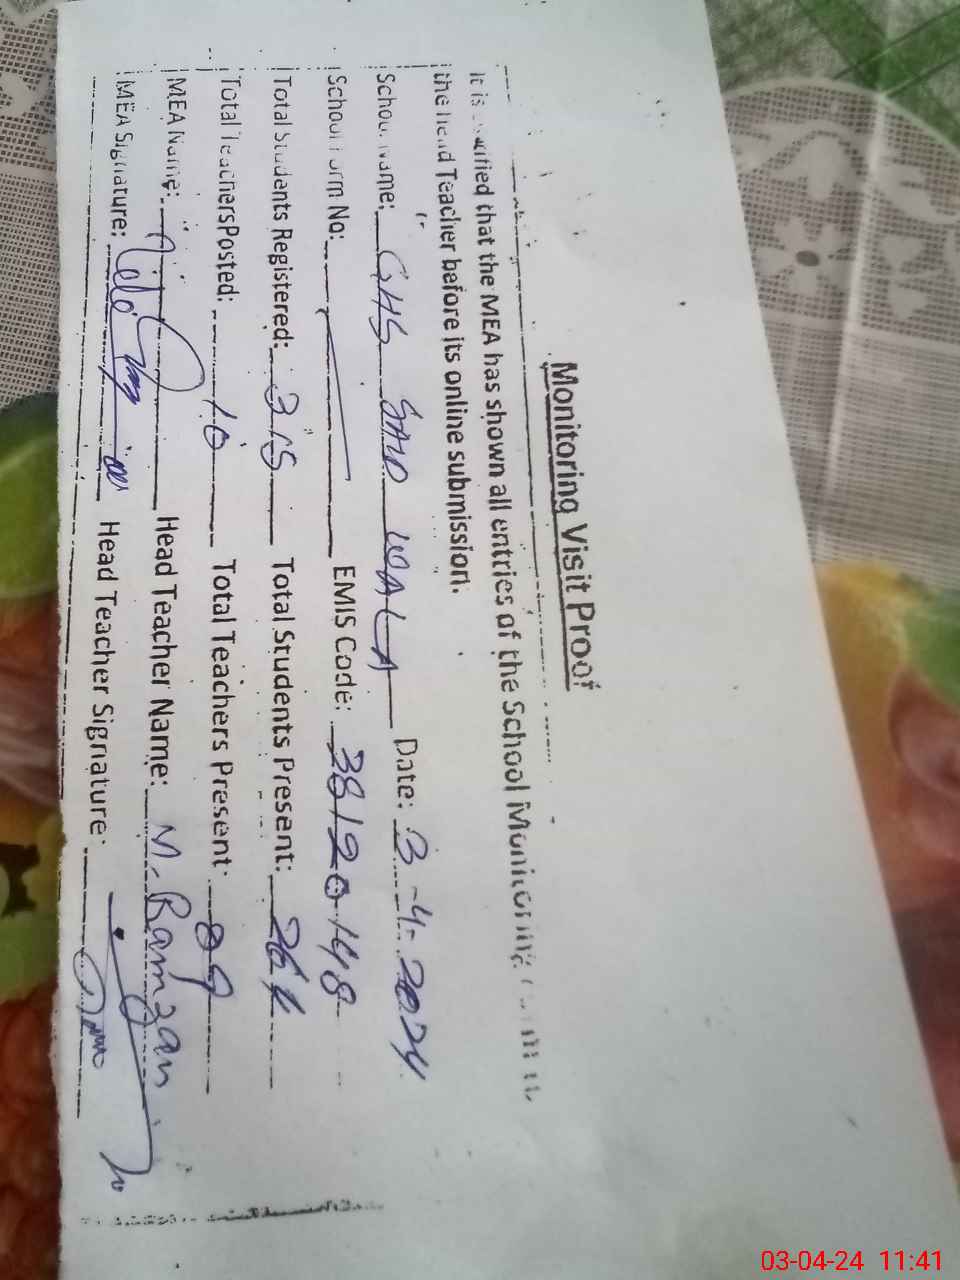 Monitoring Visit Proof
It is certified that the MEA has shown all entries of the School Monitoring
the Head Teacher before its online submission.
School Name: GHS SAID WALA Date: 3-4-2024
School Form No: EMIS Code: 38120148
Total Students Registered: 315 Total Students Present:
Total TeachersPosted: 10 Total Teachers Present: 09
MEA Name: Head Teacher Name: M. Ramzan
MEA Signature: Head Teacher Signature:
03-04-24 11:41